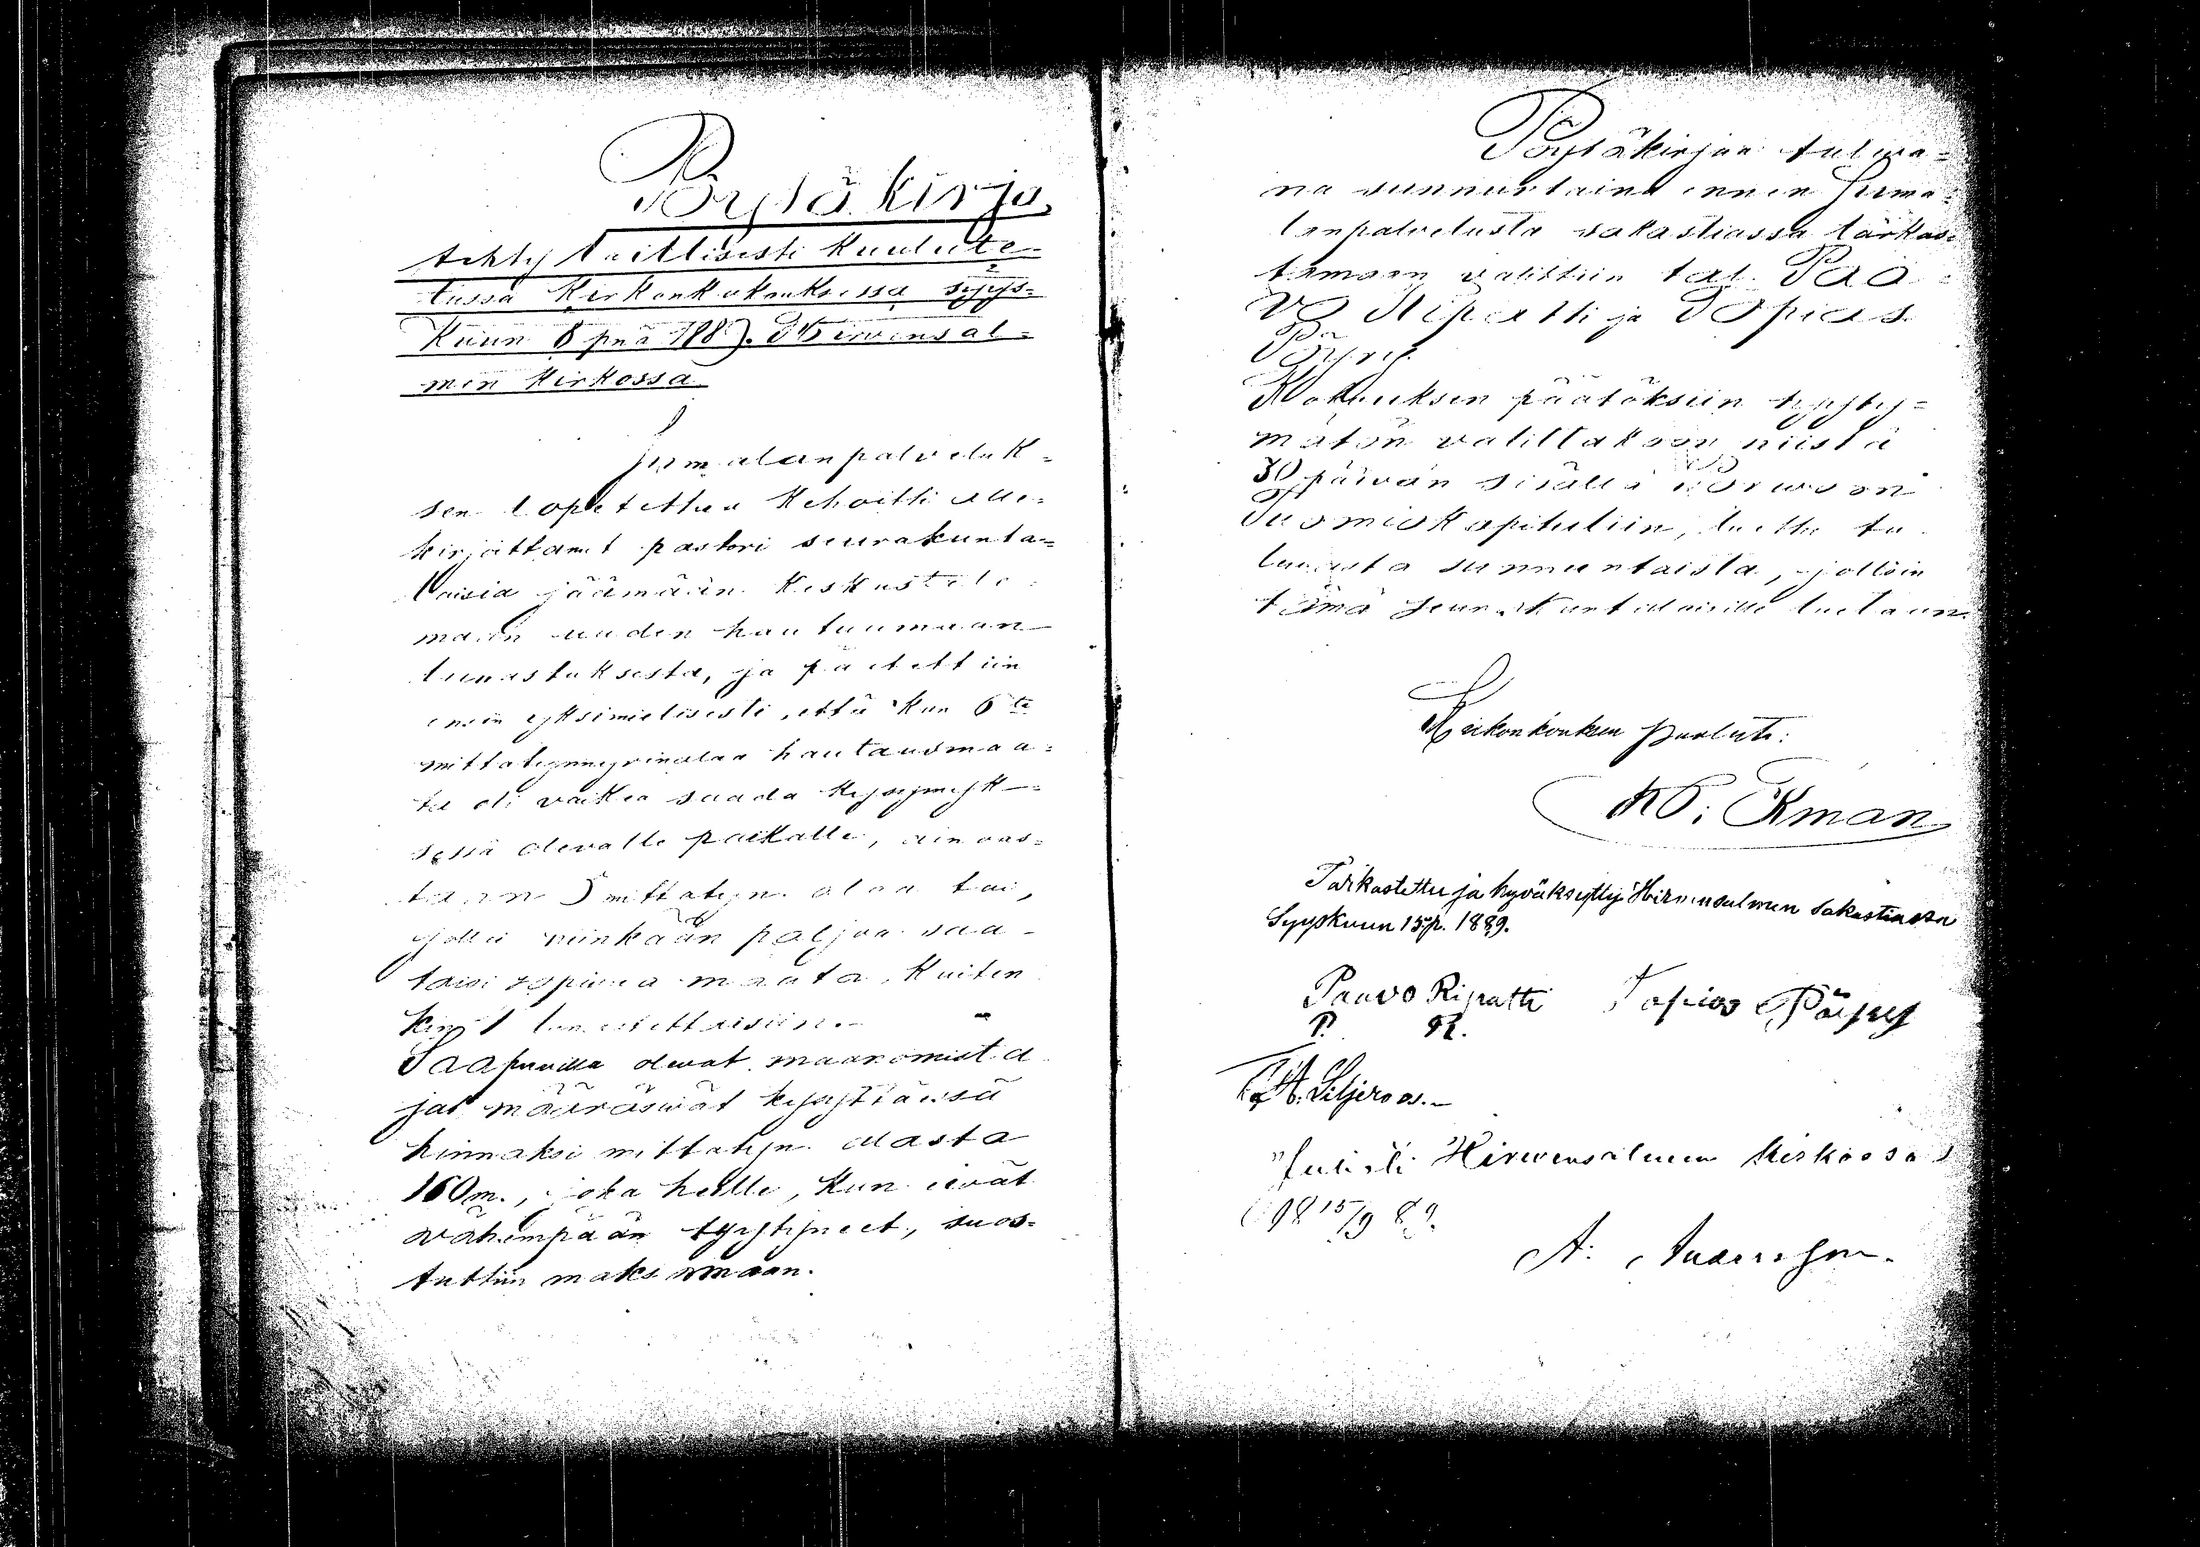 Pöytäkirja,
tehty laillisesti kuulute-
tussa Kirkonkokouksessa syys-
kuun 8 pnä 1889. Hirvensal-
men kirkossa
Jumalanpalveluk-
sen lopetettua kehoitti alle-
kirjottanut pastori seurakunta-
laisia jäämään keskustele-
maan uuden hautuumaan
lunastuksesta, ja päätettiin
ensin yksimielisesti, että kun 6 te
mittatynnyrinalaa hautausmaa-
ta oli vaikea saada kysymyk-
sessä olevalle paikalle, ainoas-
taan 5 mittatyn. alaa tai,
jollei niinkään paljoa saa-
taisi sopivaa maata, kuiten
kin lunastettaisiin.-
Saapuvilla olevat maanomista
jat määräsivät kysyttäessä
hinnaksi mittatyn. alasta
160 m., joka heille, kun eivät
vähempään tyytyneet, suos-
tuttiin maksamaan.
Pöytäkirjaa tulwa-
na sunnuntaina ennen Juma-
lanpalvelusta sakastiassa tarkas-
tamaan valittiin tal. Paa-
vo Ripatti ja Topias
Pöyry.
Kokouksen päätöksiin tyyty-
mätön valittakoon niistä
30 päivän sisällä Porwoon
Tuomiokapituliin, luettu tu
levasta sunnuntaista, jolloin
tämä seurakuntalaisille luetaan.
Kirkonkokouksen puolesta:
K. Ekman
Tarkastettu ja hyväksytty Hirvensalmen Sakastiassa
Syyskuun 15 p. 1889.
Paavo Ripatti Topias Pöyry
P. R.
A. Liljeroos.-
Julisti Hirvensalmen kirkossa
15/9 89.
A.